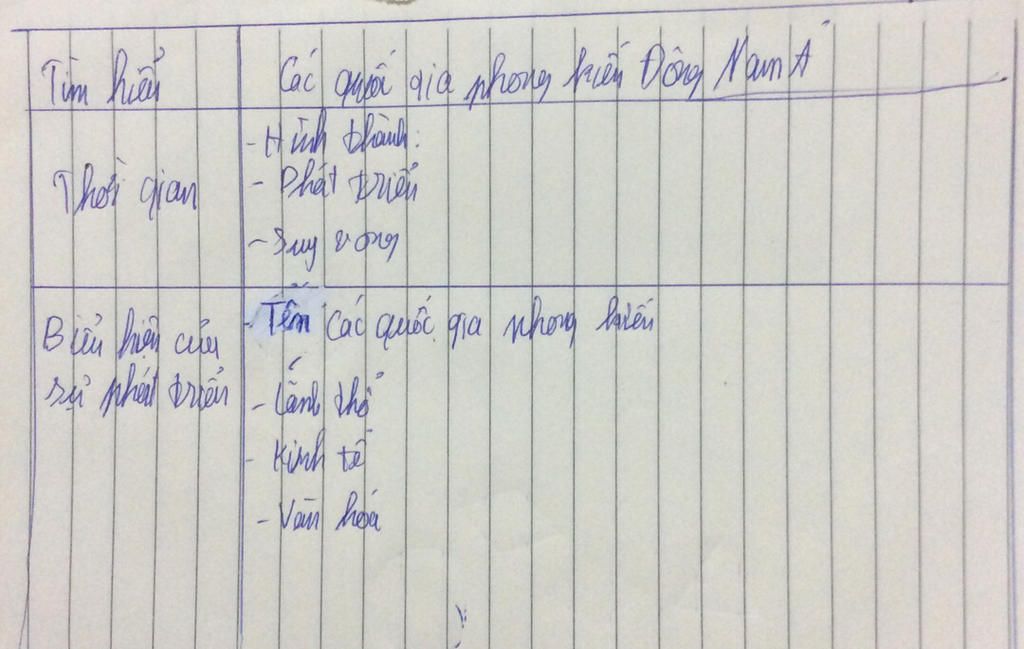 Tìm hiểu
Các quốc gia phong kiến Đông Nam Á
Thời gian
- Hình thành:
- Phát triển
- Suy vong
Biểu hiện của
sự phát triển
- Tên các quốc gia phong kiến
- Lãnh thổ
- Kinh tế
- Văn hoá